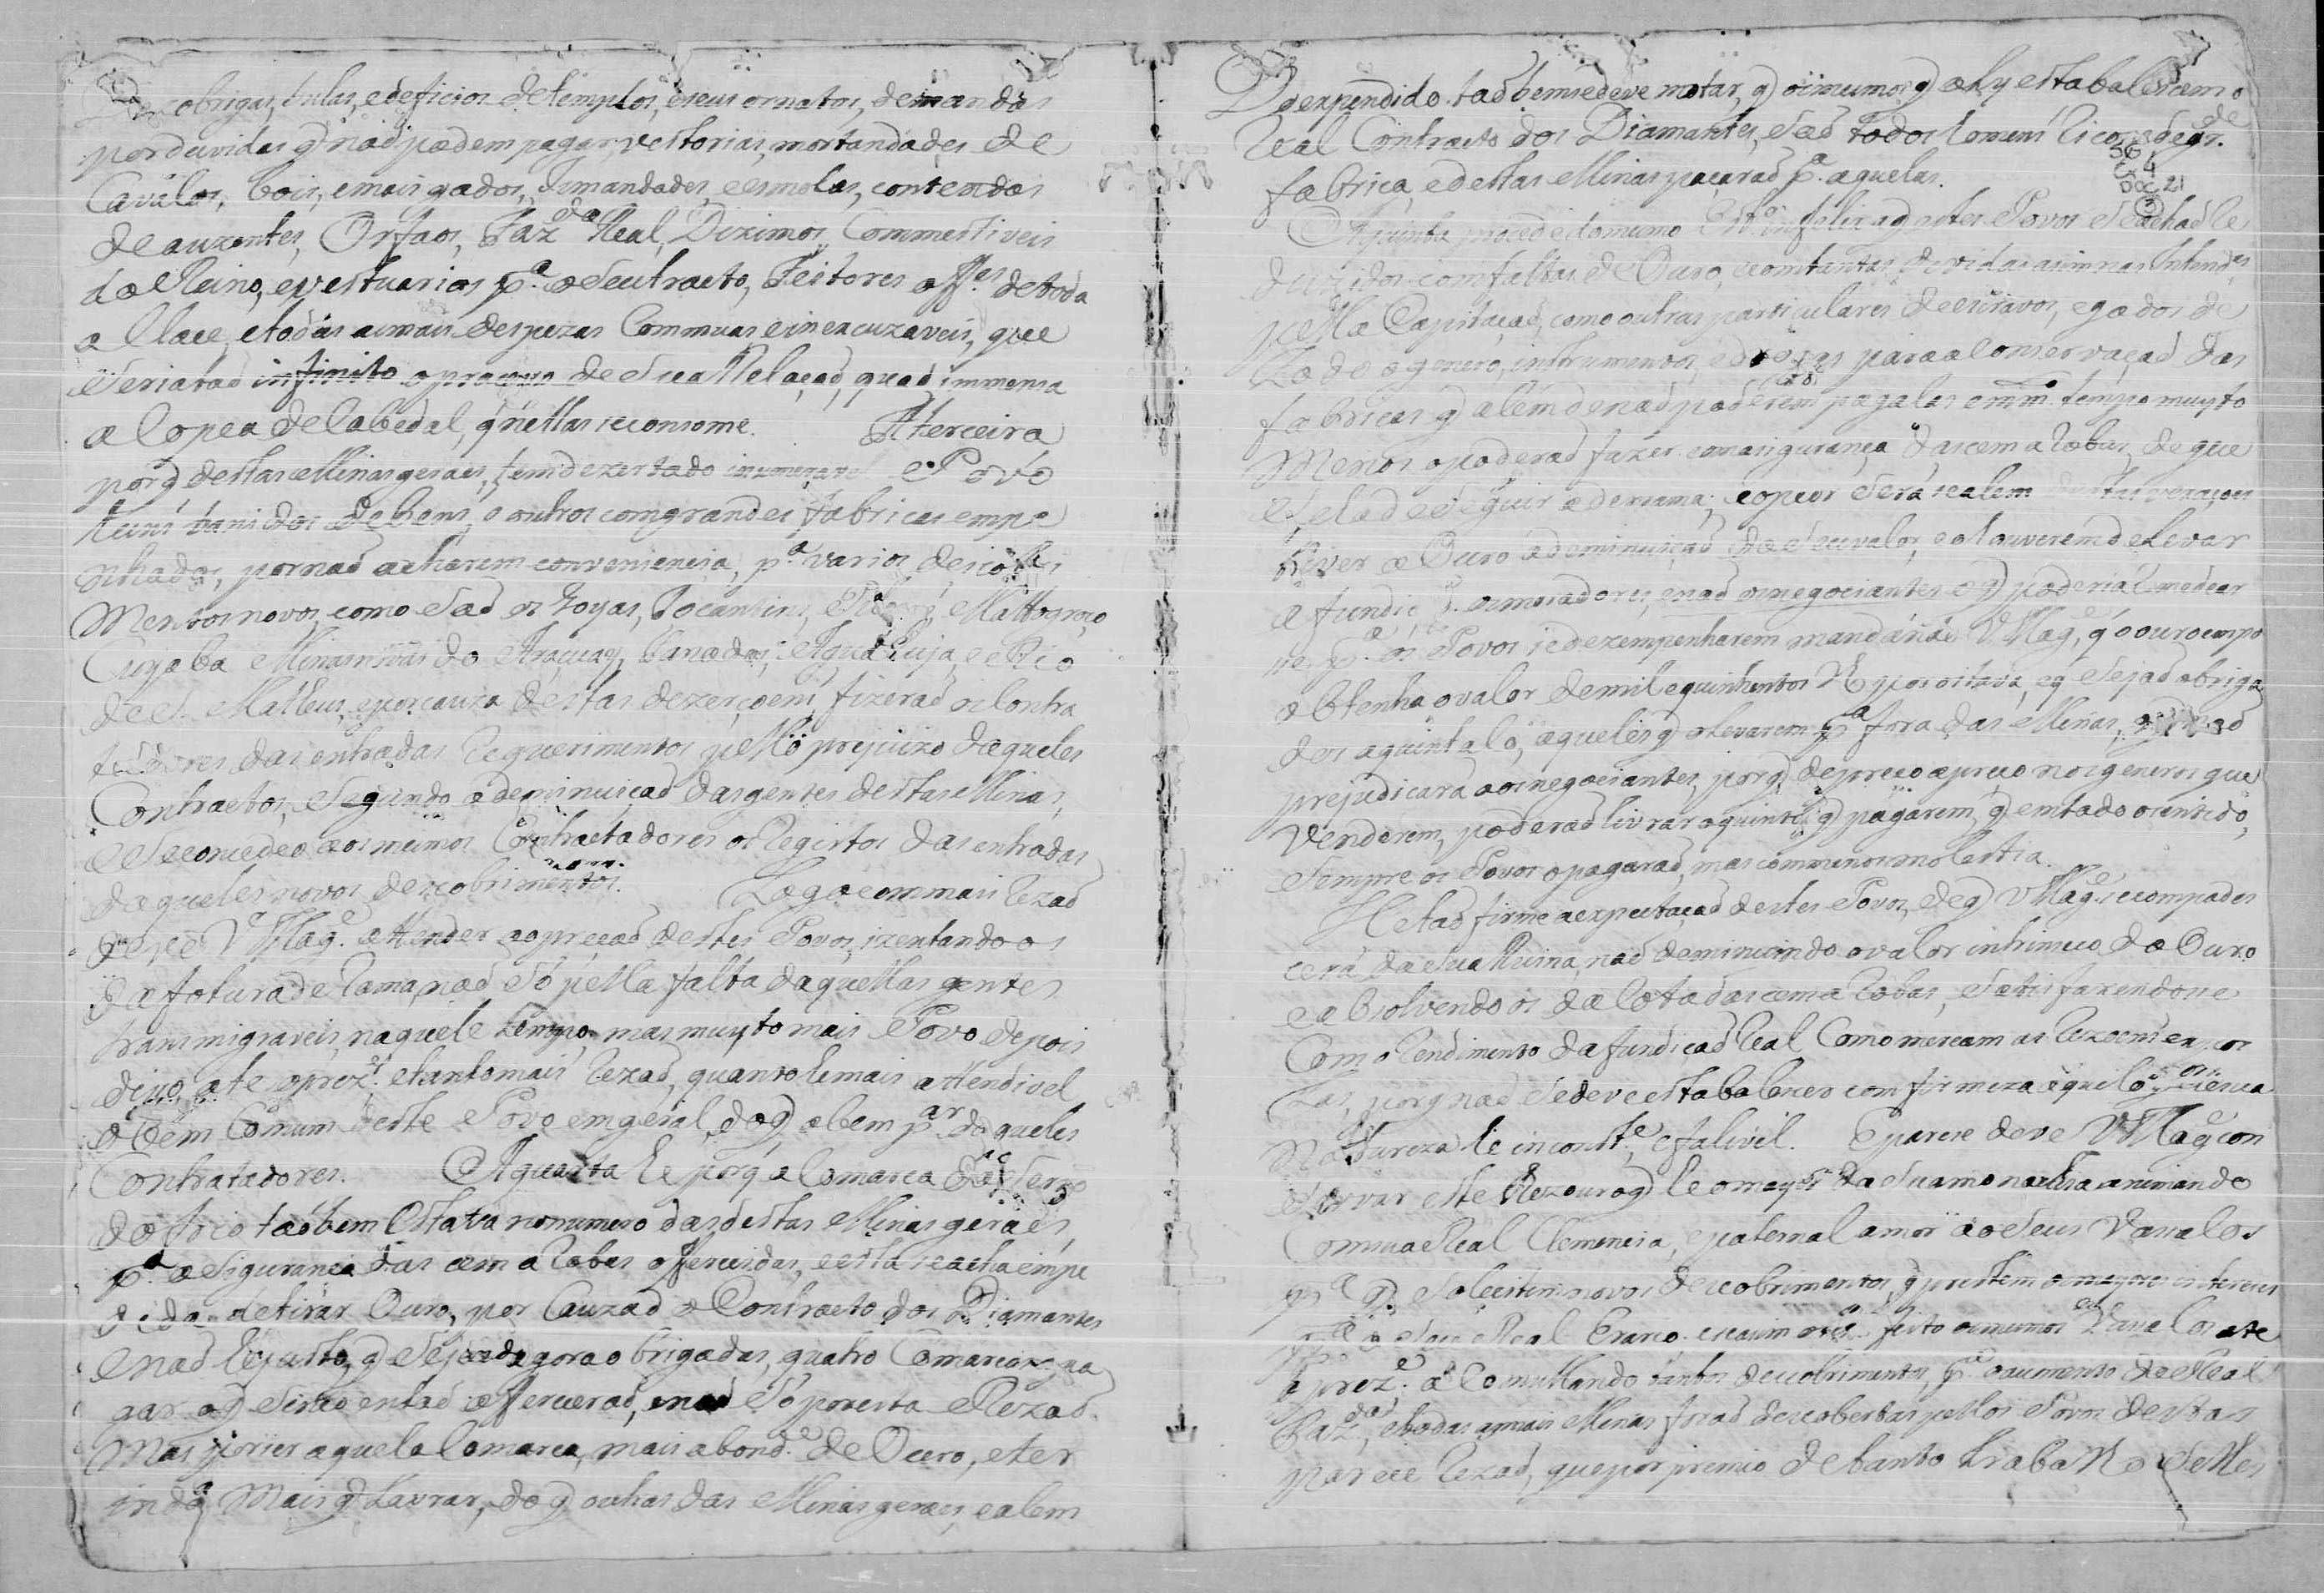 cobrigas, bulas, edeficios detemplos, eseus ornatos, demandas
porduvidas q̃ naõ podem pagar, vestorias, mortandades de
Cavalos, bois, emais gados, Irmandades, eesmolas, contendas
de auzentes, Orfaos, Faz.da Real, Dizimos, Commestiveis
do Reino, evestuarios p.a o Seu tracto, Feitores off.es detoda
a Clace, etodas asmais despezas Commuas, einexcuzaveis, que
Seriataõ infinito oprocesso de Sua Relaçaõ, quaõ immensa
a Copea de Cabedal, q̃ nellas seconsome. A terceira
porq̃ destas Minas geraes, tem dezertado inumeravel Povo
huns banidos de bens, e outros comgrandes fabricas empe
nhados, pornaõ acharem conveniencia, p.a varios descobri
Mentos novos, como Saõ os Goyas, Tocantins, Mattogroço
Cuyaba Minasnovas do Araçuay, Panados, Agua Suja, e Rio
de S. Matheus, eporcauza destas dezerçoens, fizeraõ os Contra
tadores das entradas Requerimentos pello prejuizo daqueles
Contractos, Segundo a deminuiçaõ dasgentes destas Minas,
e Seconcedeo aos mesmos Contractadores os Registos das entradas
daqueles novos descobrimentos. Logo com mais Rezaõ
deve V Mag.e attender aopreçaõ destes Povos, izentando os
da fotura derama, naõ Só pella falta daquellas gentes
transmigraveis, naquele tempo, mas muyto mais Povo depois
diço, ate oprez.te etanto mais Rezaõ, quanto he mais attendivel
o bem Comum deste Povo emgeral, doq̃ obem p.ar daqueles
Contratadores. A quarta he porq̃ a Comarca do Serro
do frio taõbem Estava nonumero das destas Minas geraes,
p.a aSegurança das cem aRobas offerecidas, eesta seacha empe
dida detirar Ouro, por Cauza do Contracto dos Diamantes
enaõ hejusto, q̃ Sejaõ agora obrigadas, quatro Comarcas apa
gar oq̃ Sinco entaõ offereceraõ, enaõ Só poresta Rezaõ
Mas porser aquela Comarca, mais abond.e de Ouro, eter
inda Mais q̃ Lavrar, doq̃ outras das Minas geraes, ealem
Doexpendido taõbem sedeve notar, q̃ osmesmos q̃ aly estabalecem o
Real Contracto dos Diamantes, Saõ todos homens Ricos, e de gr.de
fabrica, edestas Minas paçaraõ p.a aquelas.
56
Cx 4
Doc 21
3
Aquinta procede domesmo infeliz aq̃ estes Povos Seachaõ Re
duzidos comfaltas de Ouro, ecomtantas dividas asim nas Intend.as
pella Capitaçaõ, como outras particulares deescravos, egados de
todo ogenero, instrumentos, edrogas para a Conservaçaõ das
fabricas q̃ alem denaõ poderem pagalas em m.to tempo muyto
Menos opoderaõ fazer comasigurança dascem aRobas, de que
eSeSeguir aderrama; eopeor Será sealem destas vexaçoes
tiver o Ouro ademinuiçaõ do Seuvalor, e o houverem delevar
afundiç.m osmoradores, enaõ osnegociantes o q̃ poderia Remedear
se p.a os Povos sedezempenharem mandando V Mag.e q̃ o ouroempo
obtenha ovalor demilequinhentos R.s por oitava, eq̃ Sejaõ obriga
dos aquintalo, aqueles q̃ olevarem p.a fora das Minas, naõ
prejudicará aosnegociantes, porq̃ depreço apreço nosgeneros que
Venderem, poderaõ livrar oquinto q̃ pagarem, q̃ emtodo osentido,
Sempre os Povos opagaraõ, mas commenos molestia.
He taõ firme aexpectaçaõ destes Povos, deq̃ V Mag.e secompade
cerá da Sua Ruina, naõ deminuindo ovalor intrinseco do Ouro
e absolvendoos da Cota dascem aRobas, Satisfazendose
Com o Rendimento dafundiçaõ Real Como mereçam as Rezoens expos
tas, porq̃ naõ Sedeve estabalecer comfirmeza aquilo,
Natureza he inconst.e efalivel. E parece deve V Mag.e con
servar este Thezouro q̃ he omayor da Sua monarchia animando
Comsua Real Clemencia, epaternal amor aoSeus Vassalos
p.a q̃ Solecitem novos descobrimentos q̃ prestem omayores intereces
p.a o Seu Real Erario easim tem feito osmesmos Vassalos ate
oprez.e aComullando tantos descobrimentos p.a oaumento da Real
Faz.da, etodas asmais Minas foraõ descobertas pellos Povos destas
parece Rezaõ, que por premio detanto trabalho Selhes